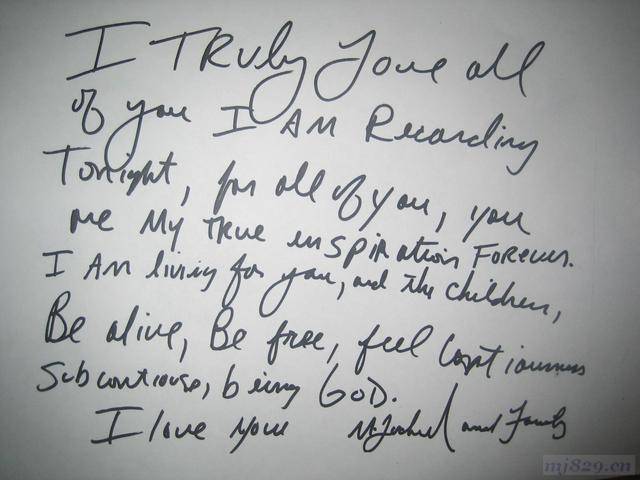 I TRuly love all
of you I AM Recording
Tonight, for all of you, you
are My TRUE inspiration FOREVER.
I AM living for you, and The children,
Be alive, Be free, feel
being GOD.
I love you Michael and Family
mj829.cn